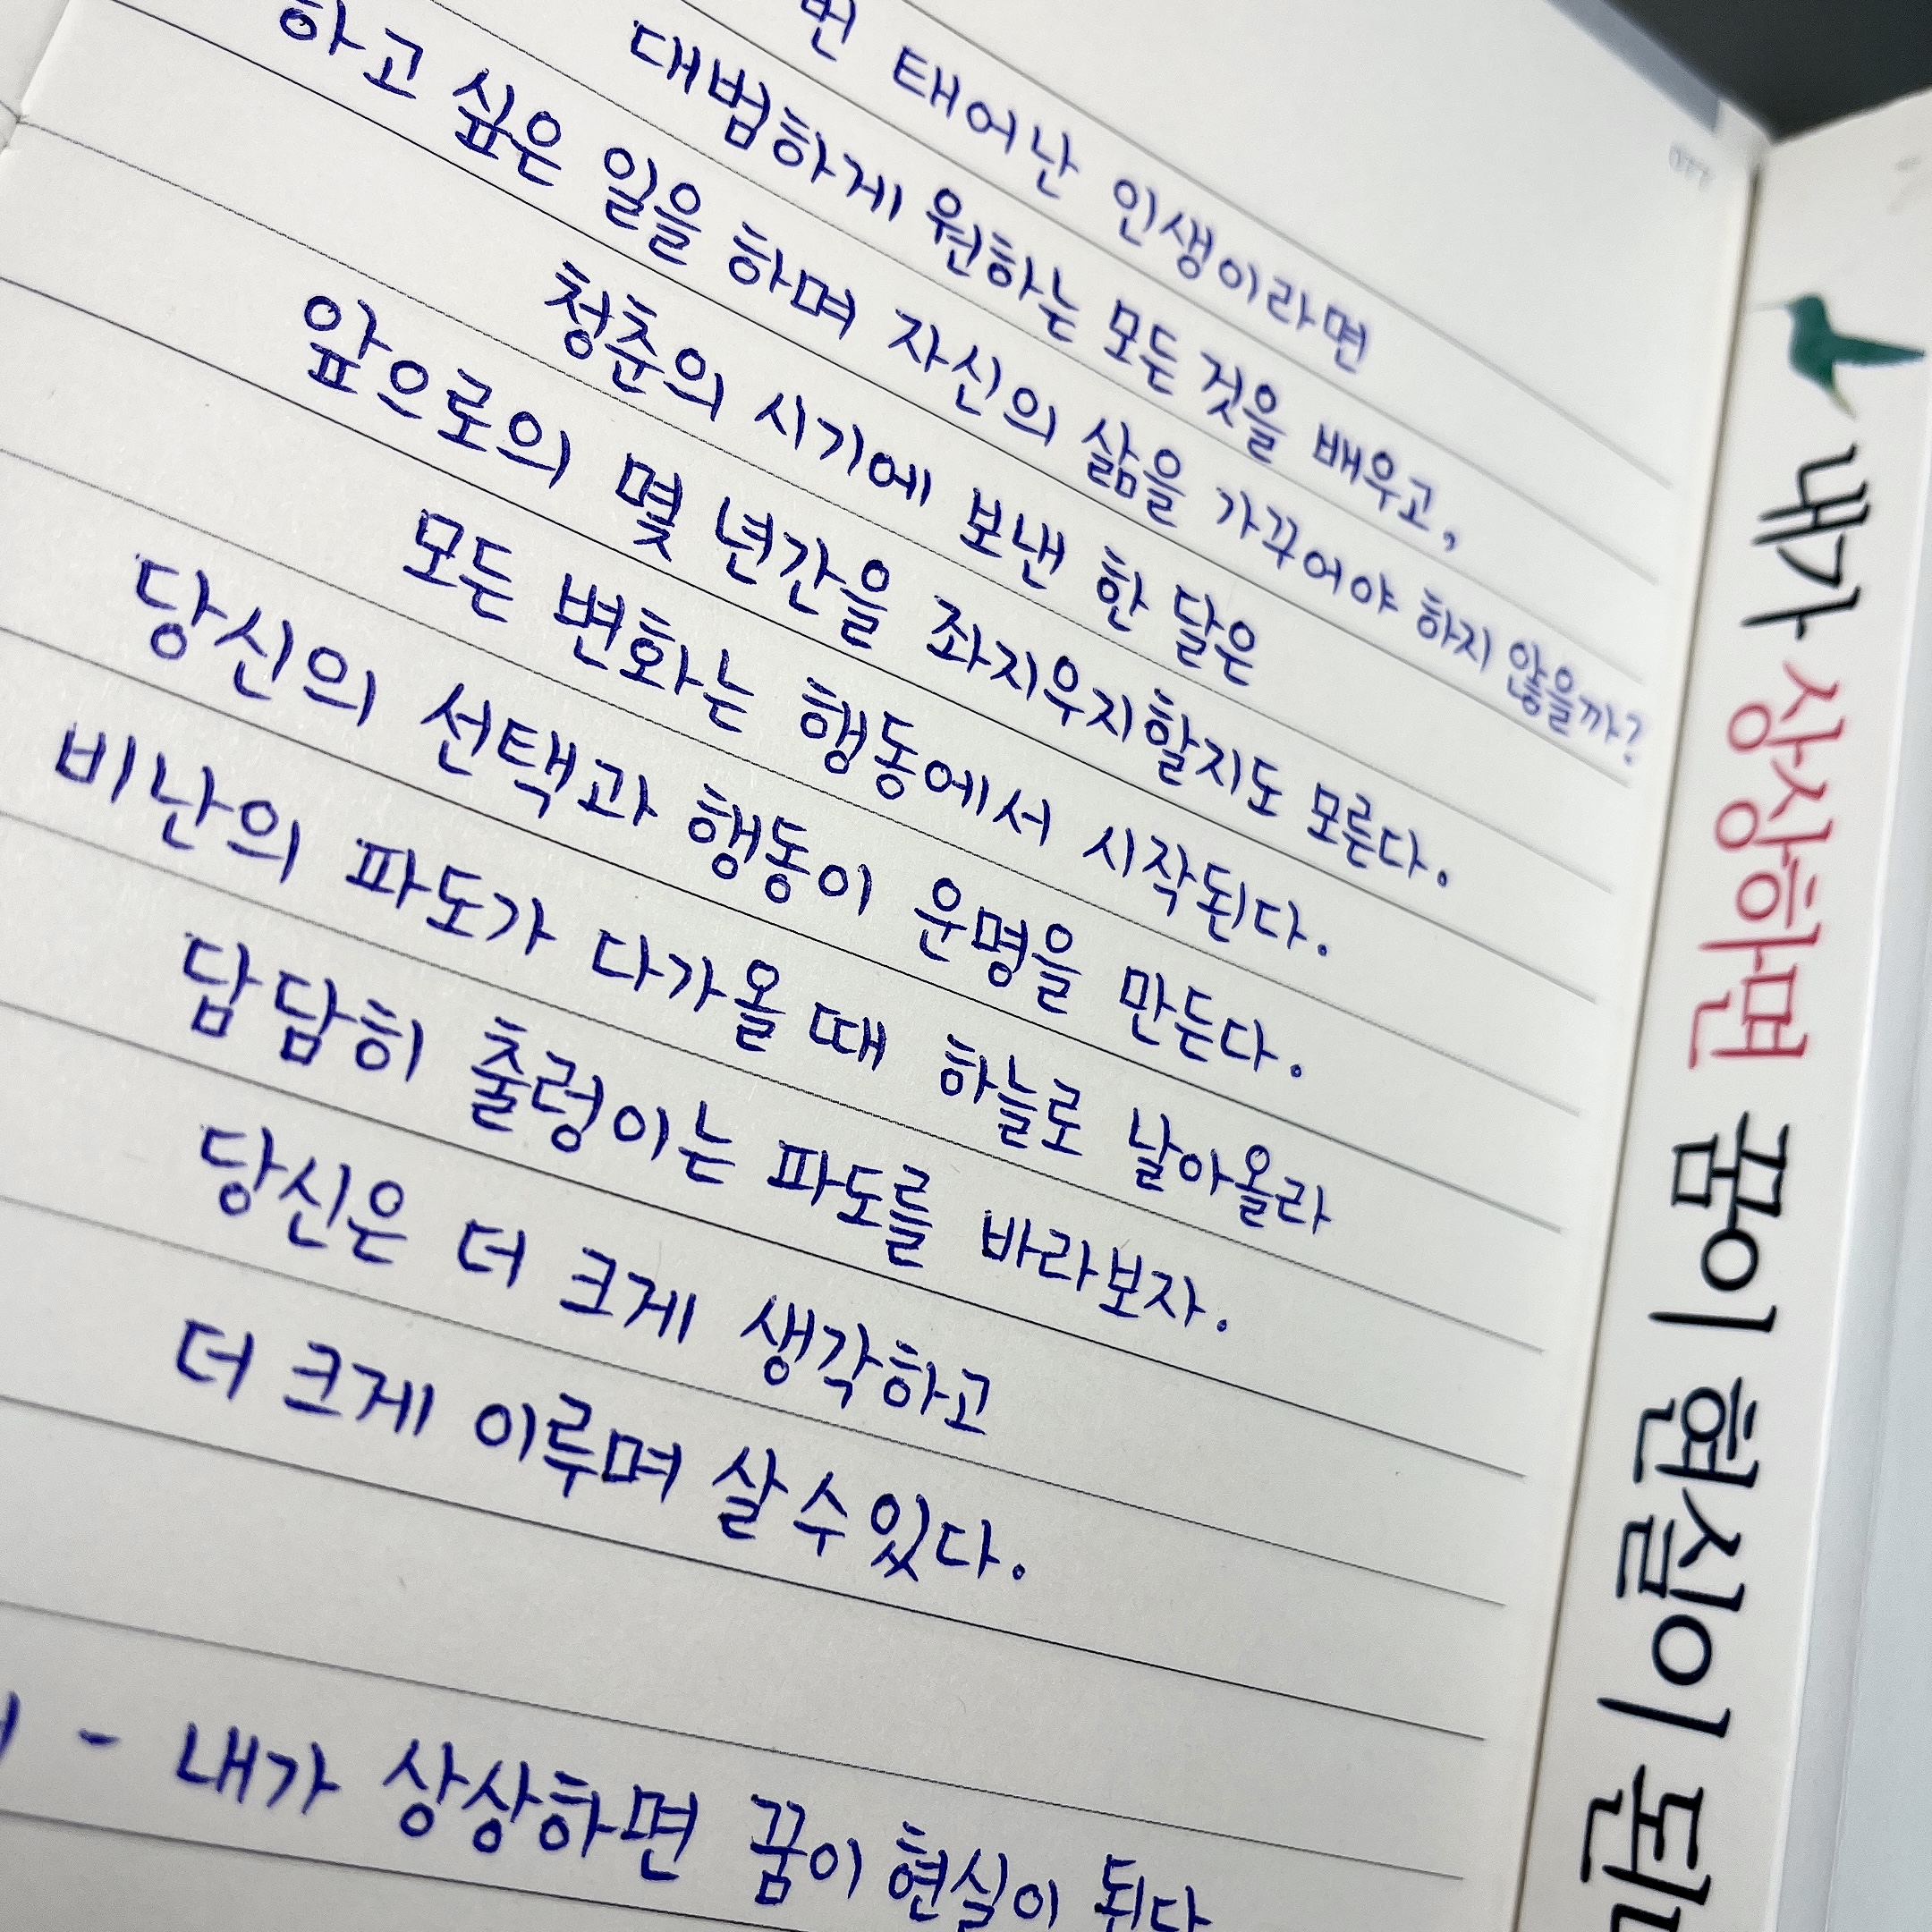 번 태어난 인생이라면
대범하게 원하는 모든 것을 배우고,
하고 싶은 일을 하며 자신의 삶을 가꾸어야 하지 않을까?
청춘의 시기에 보낸 한 달은
앞으로의 몇 년간을 좌지우지할지도 모른다.
모든 변화는 행동에서 시작된다.
당신의 선택과 행동이 운명을 만든다.
비난의 파도가 다가올 때 하늘로 날아올라
담담히 출렁이는 파도를 바라보자.
당신은 더 크게 생각하고
더 크게 이루며 살 수 있다.
- 내가 상상하면 꿈이 현실이 된다
내가 상상하면 꿈이 현실이 된다